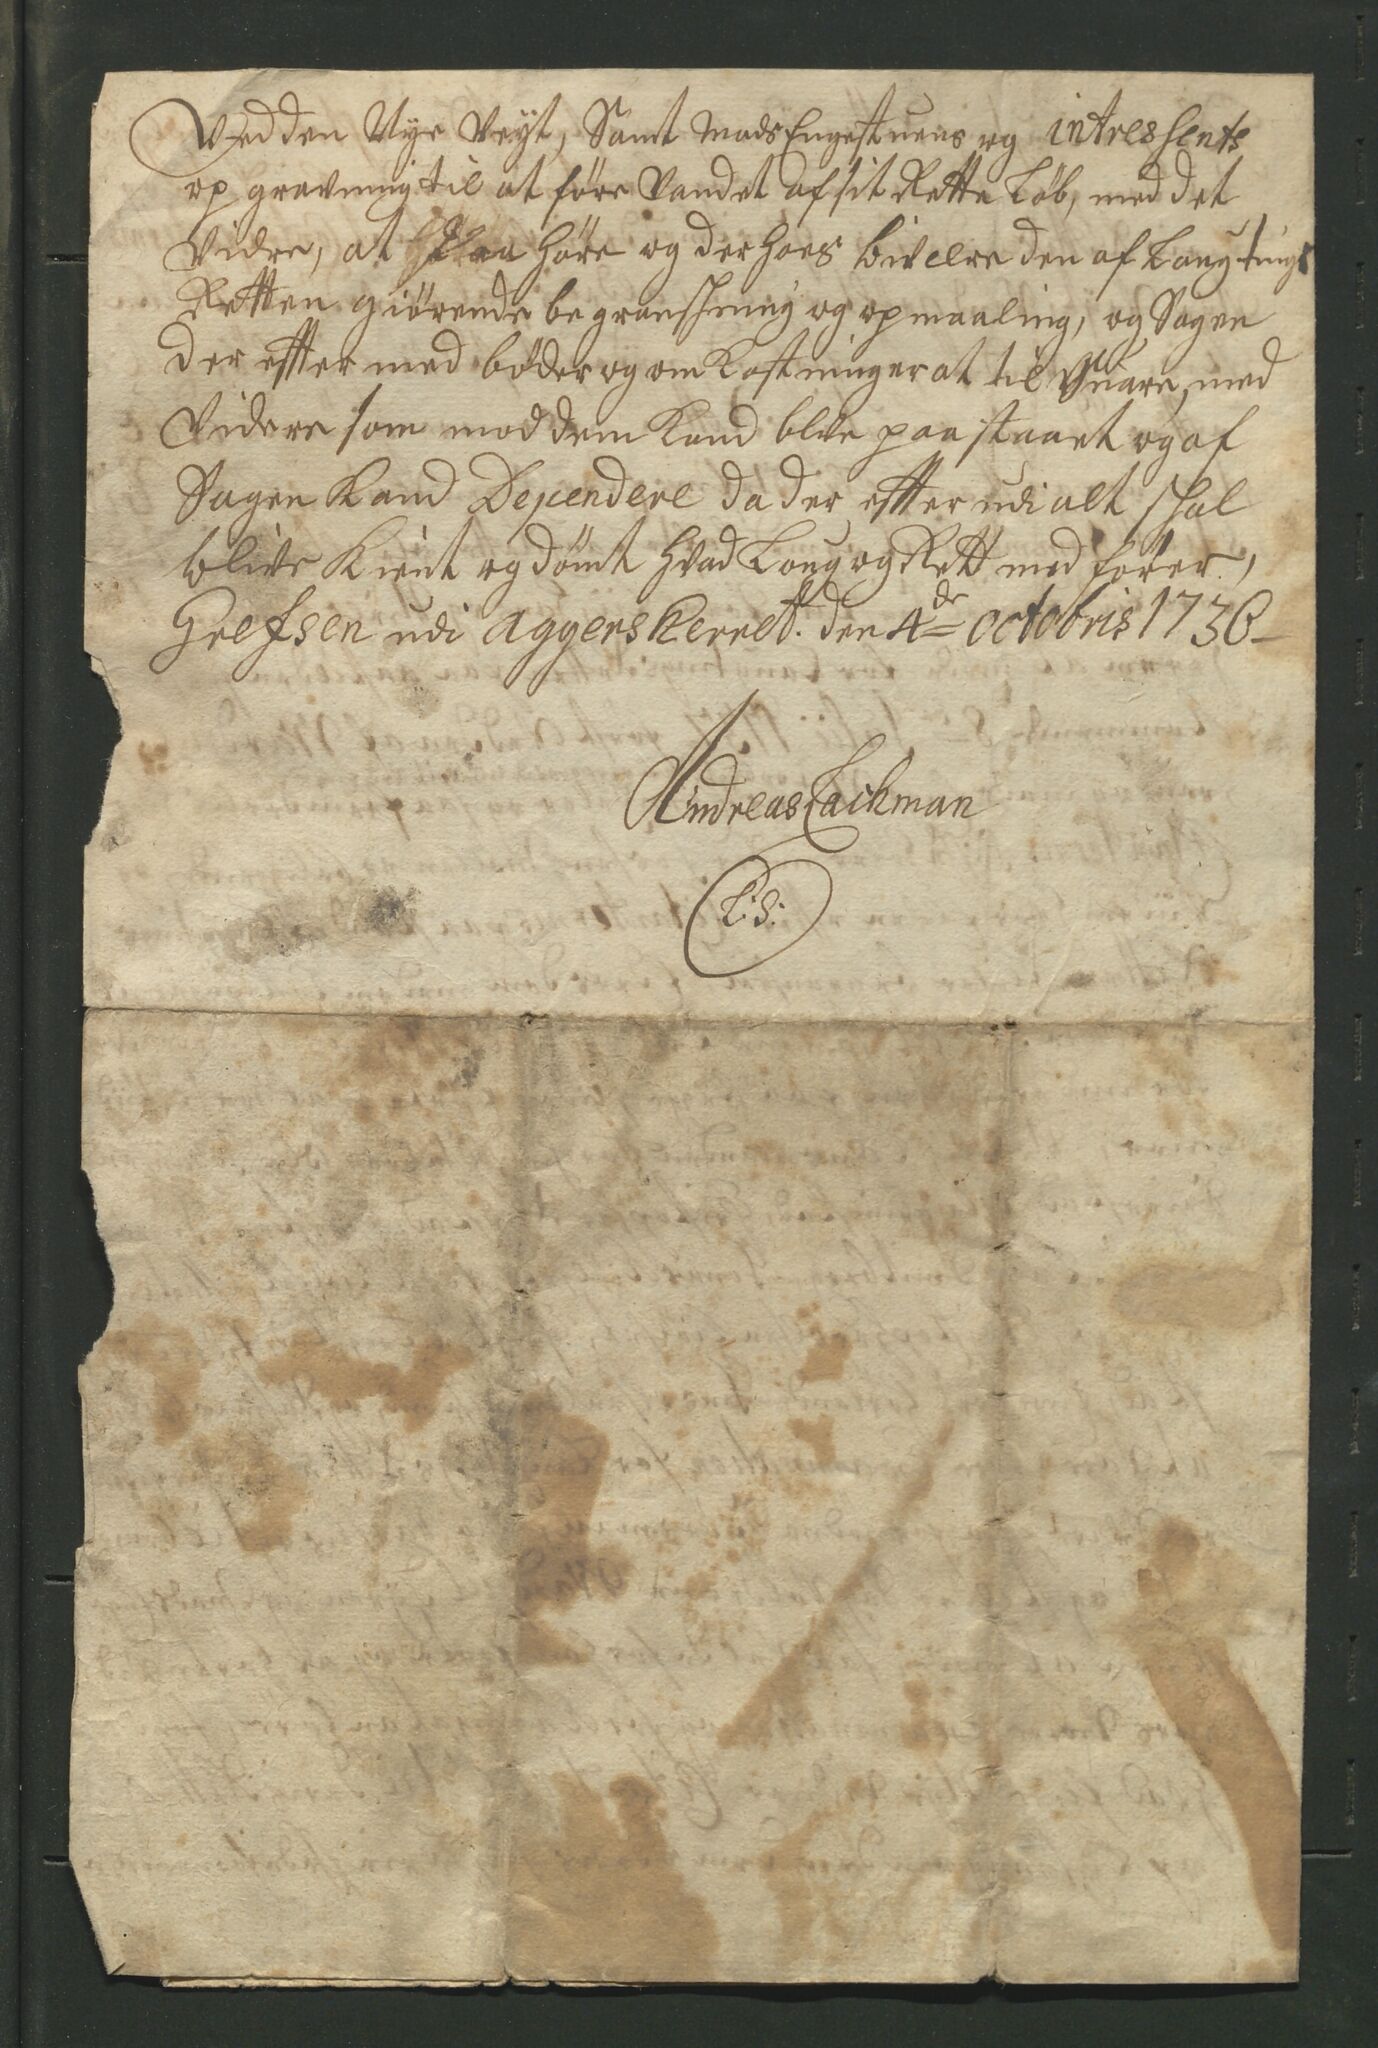 Ved den Nye Veyt, Samt Mads Engestuens og intressents
op gravning til at före Vandet af sit Rette Löb, med det
Vidre, at Paa höre og der hoes bivære den af Laugtings
Retten giörende begranshning og opmaaling, og Sagen
der effter med böder og om Kostninger at til Suare, med
Videre som mod dem Kand blive paastaaet og af
Sagen Kand Dependere da der effter udi alt schal
blive Kient og dömt hvad Loug og Rett med förer,
Grefsen udi Aggers Herret. den 4de octobris 1736
Andreas Lackman
L:S: